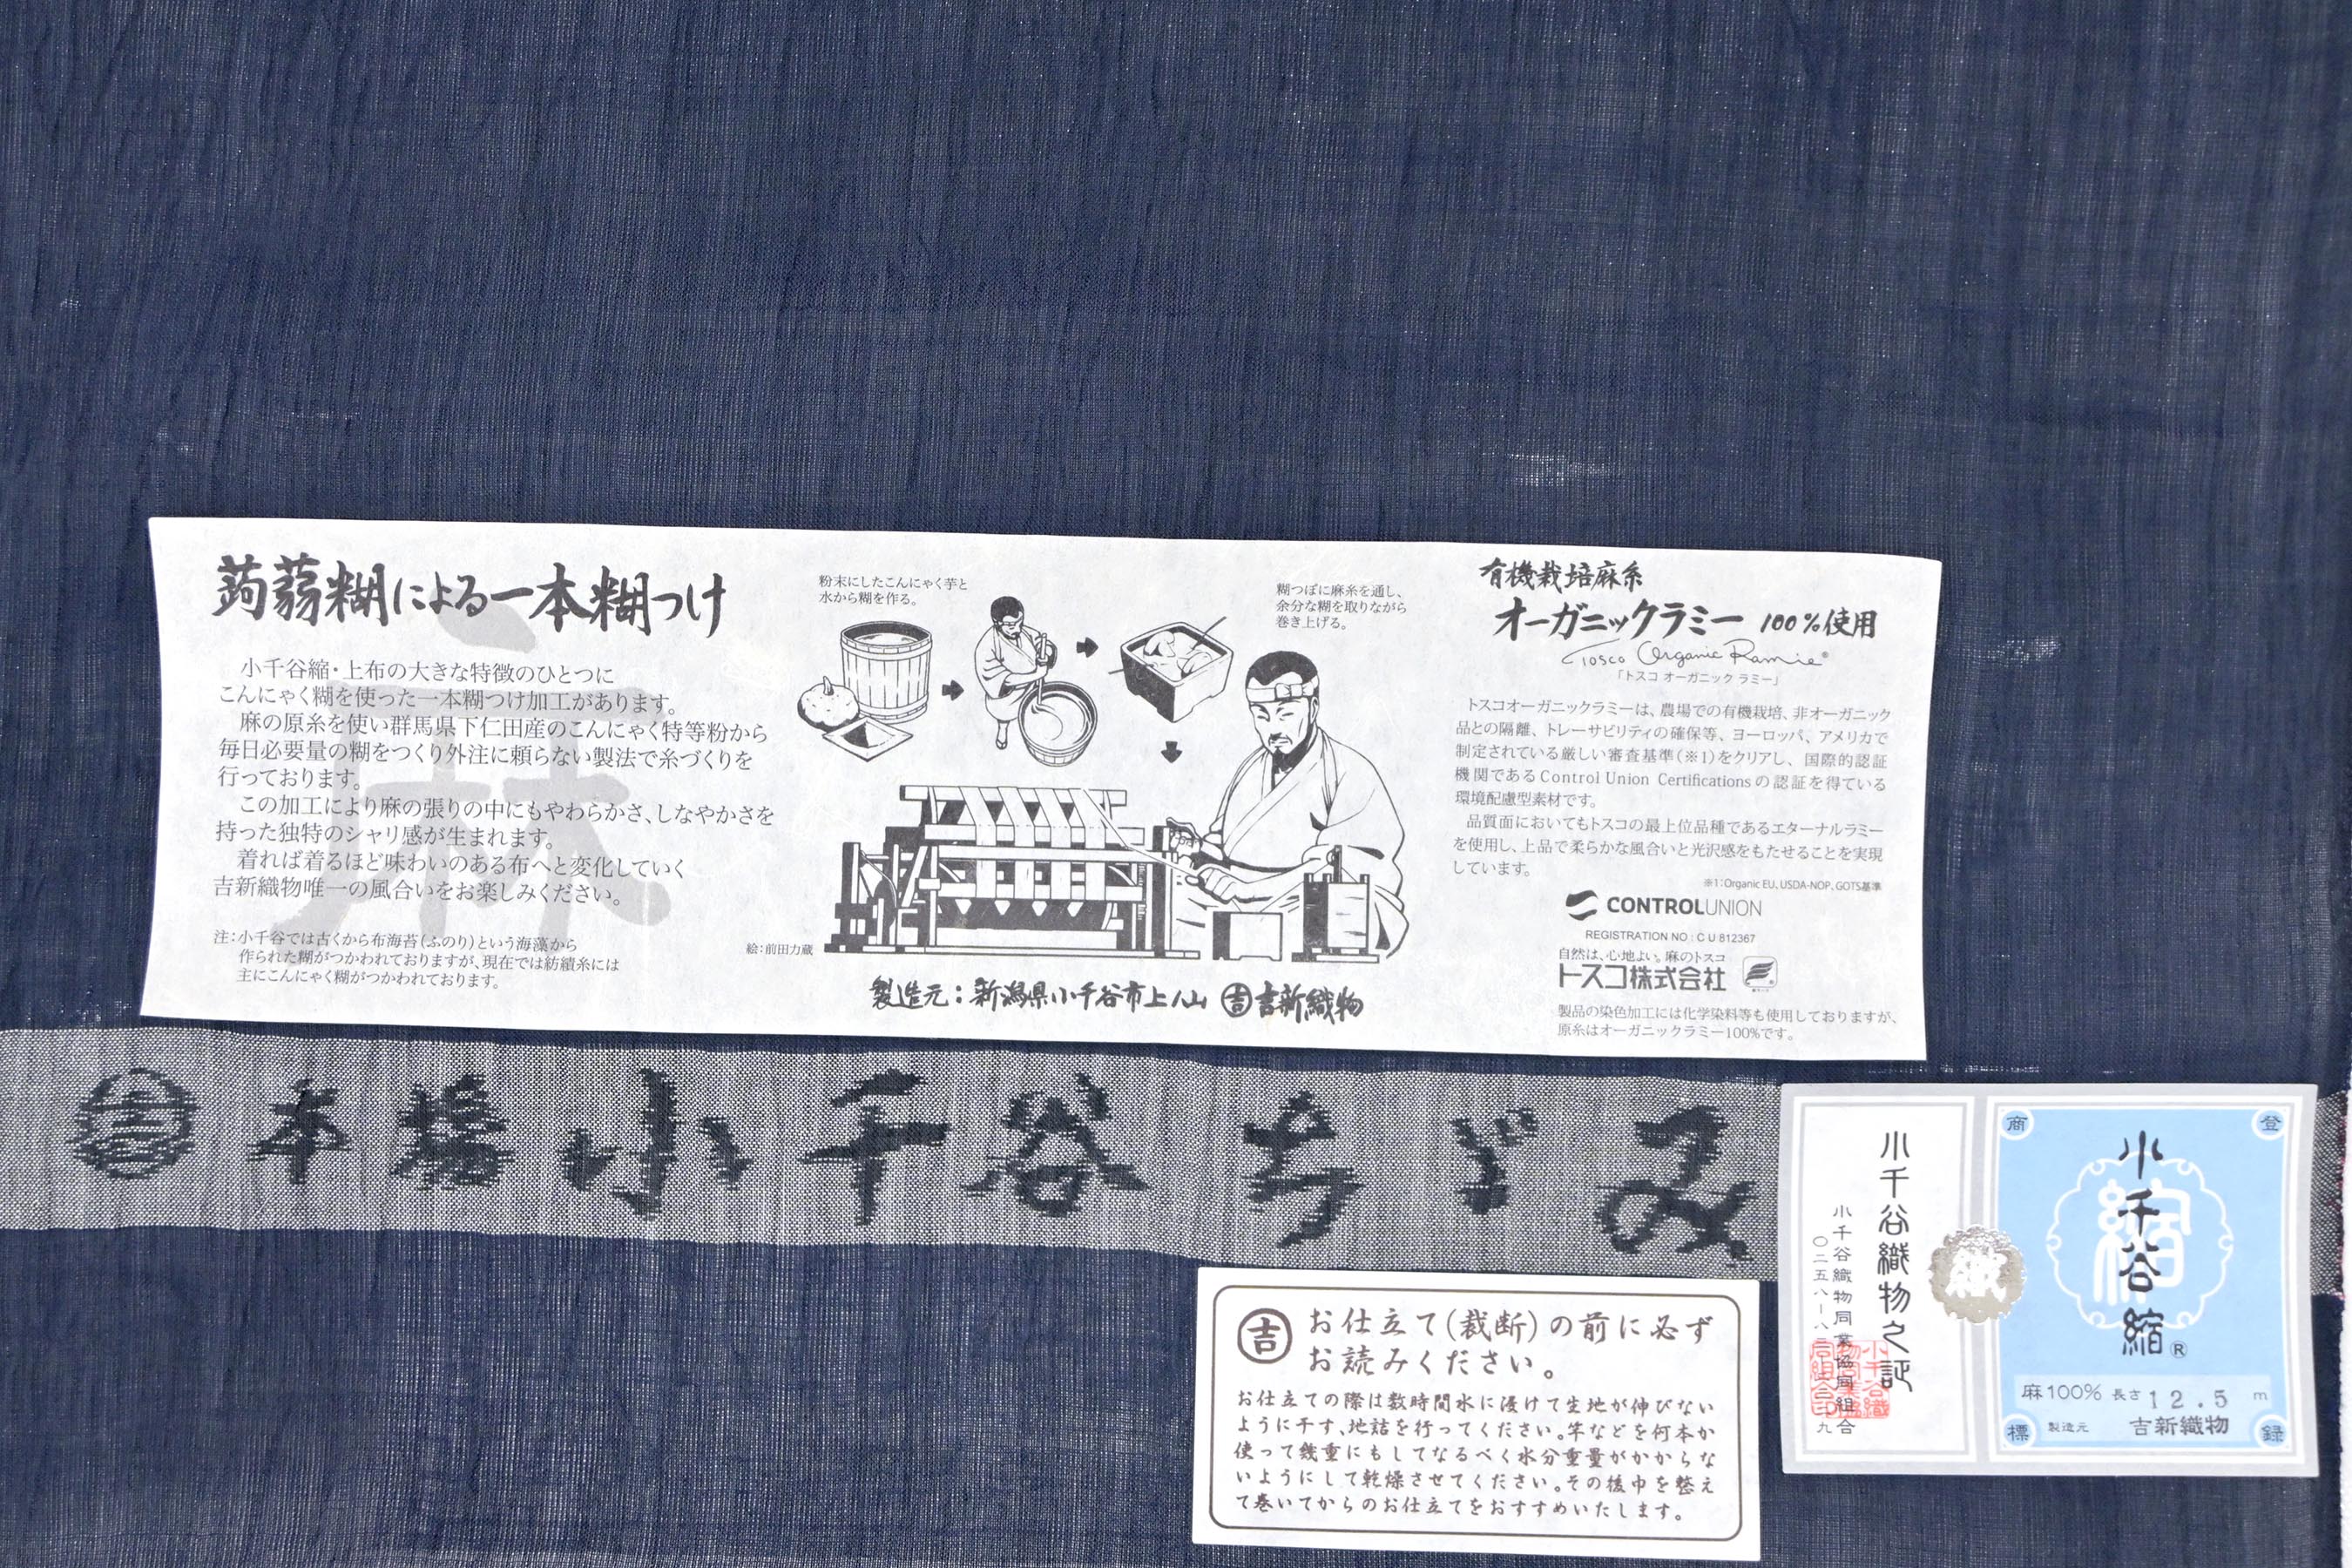 蒟蒻糊による一本糊つけ
小千谷縮・上布の大きな特徴のひとつに
こんにゃく糊を使った一本糊つけ加工があります。
麻の原糸を使い群馬県下仁田産のこんにゃく特等粉から
毎日必要量の糊をつくり外注に頼らない製法で糸づくりを
行っております。
この加工により麻の張りの中にもやわらかさ、しなやかさを
持った独特のシャリ感が生まれます。
着れば着るほど味わいのある布へと変化していく
吉新織物唯一の風合いをお楽しみください。
注：小千谷では古くから布海苔（ふのり）という海藻から
作られた糊がつかわれておりますが、現在では紡績糸には
主にこんにゃく糊がつかわれております。
麻
粉末にしたこんにゃく芋と
水から糊を作る。
糊つぼに麻糸を通し、
余分な糊を取りながら
巻き上げる。
絵：前田力蔵
製造元：新潟県小千谷市上ノ山 吉 吉新織物
有機栽培麻糸
オーガニックラミー 100％使用
Tosco Organic Ramie®
「トスコ オーガニック ラミー」
トスコオーガニックラミーは、農場での有機栽培、非オーガニック
品との隔離、トレーサビリティの確保等、ヨーロッパ、アメリカで
制定されている厳しい審査基準（※1）をクリアし、国際的認証
機関であるControl Union Certificationsの認証を得ている
環境配慮型素材です。
品質面においてもトスコの最上位品種であるエターナルラミー
を使用し、上品で柔らかな風合いと光沢感をもたせることを実現
しています。
※1：Organic EU, USDA-NOP, GOTS基準
CONTROLUNION
REGISTRATION NO : C U 812367
自然は、心地よい。麻のトスコ
トスコ株式会社
製品の染色加工には化学染料等も使用しておりますが、
原糸はオーガニックラミー100%です。
吉 本場小千谷ちぢみ
吉 お仕立て（裁断）の前に必ず
お読みください。
お仕立ての際は数時間水に浸けて生地が伸びない
ように干す、地詰を行ってください。竿などを何本か
使って幾重にもしてなるべく水分重量がかからな
いようにして乾燥させてください。その後巾を整え
て巻いてからのお仕立てをおすすめいたします。
商 登
標 録
縮
小千谷縮®
麻100% 長さ12.5 m
製造元 吉新織物
織
小千谷織物之証
小千谷織物同業協同組合
小千谷織
物同業協
同組合印